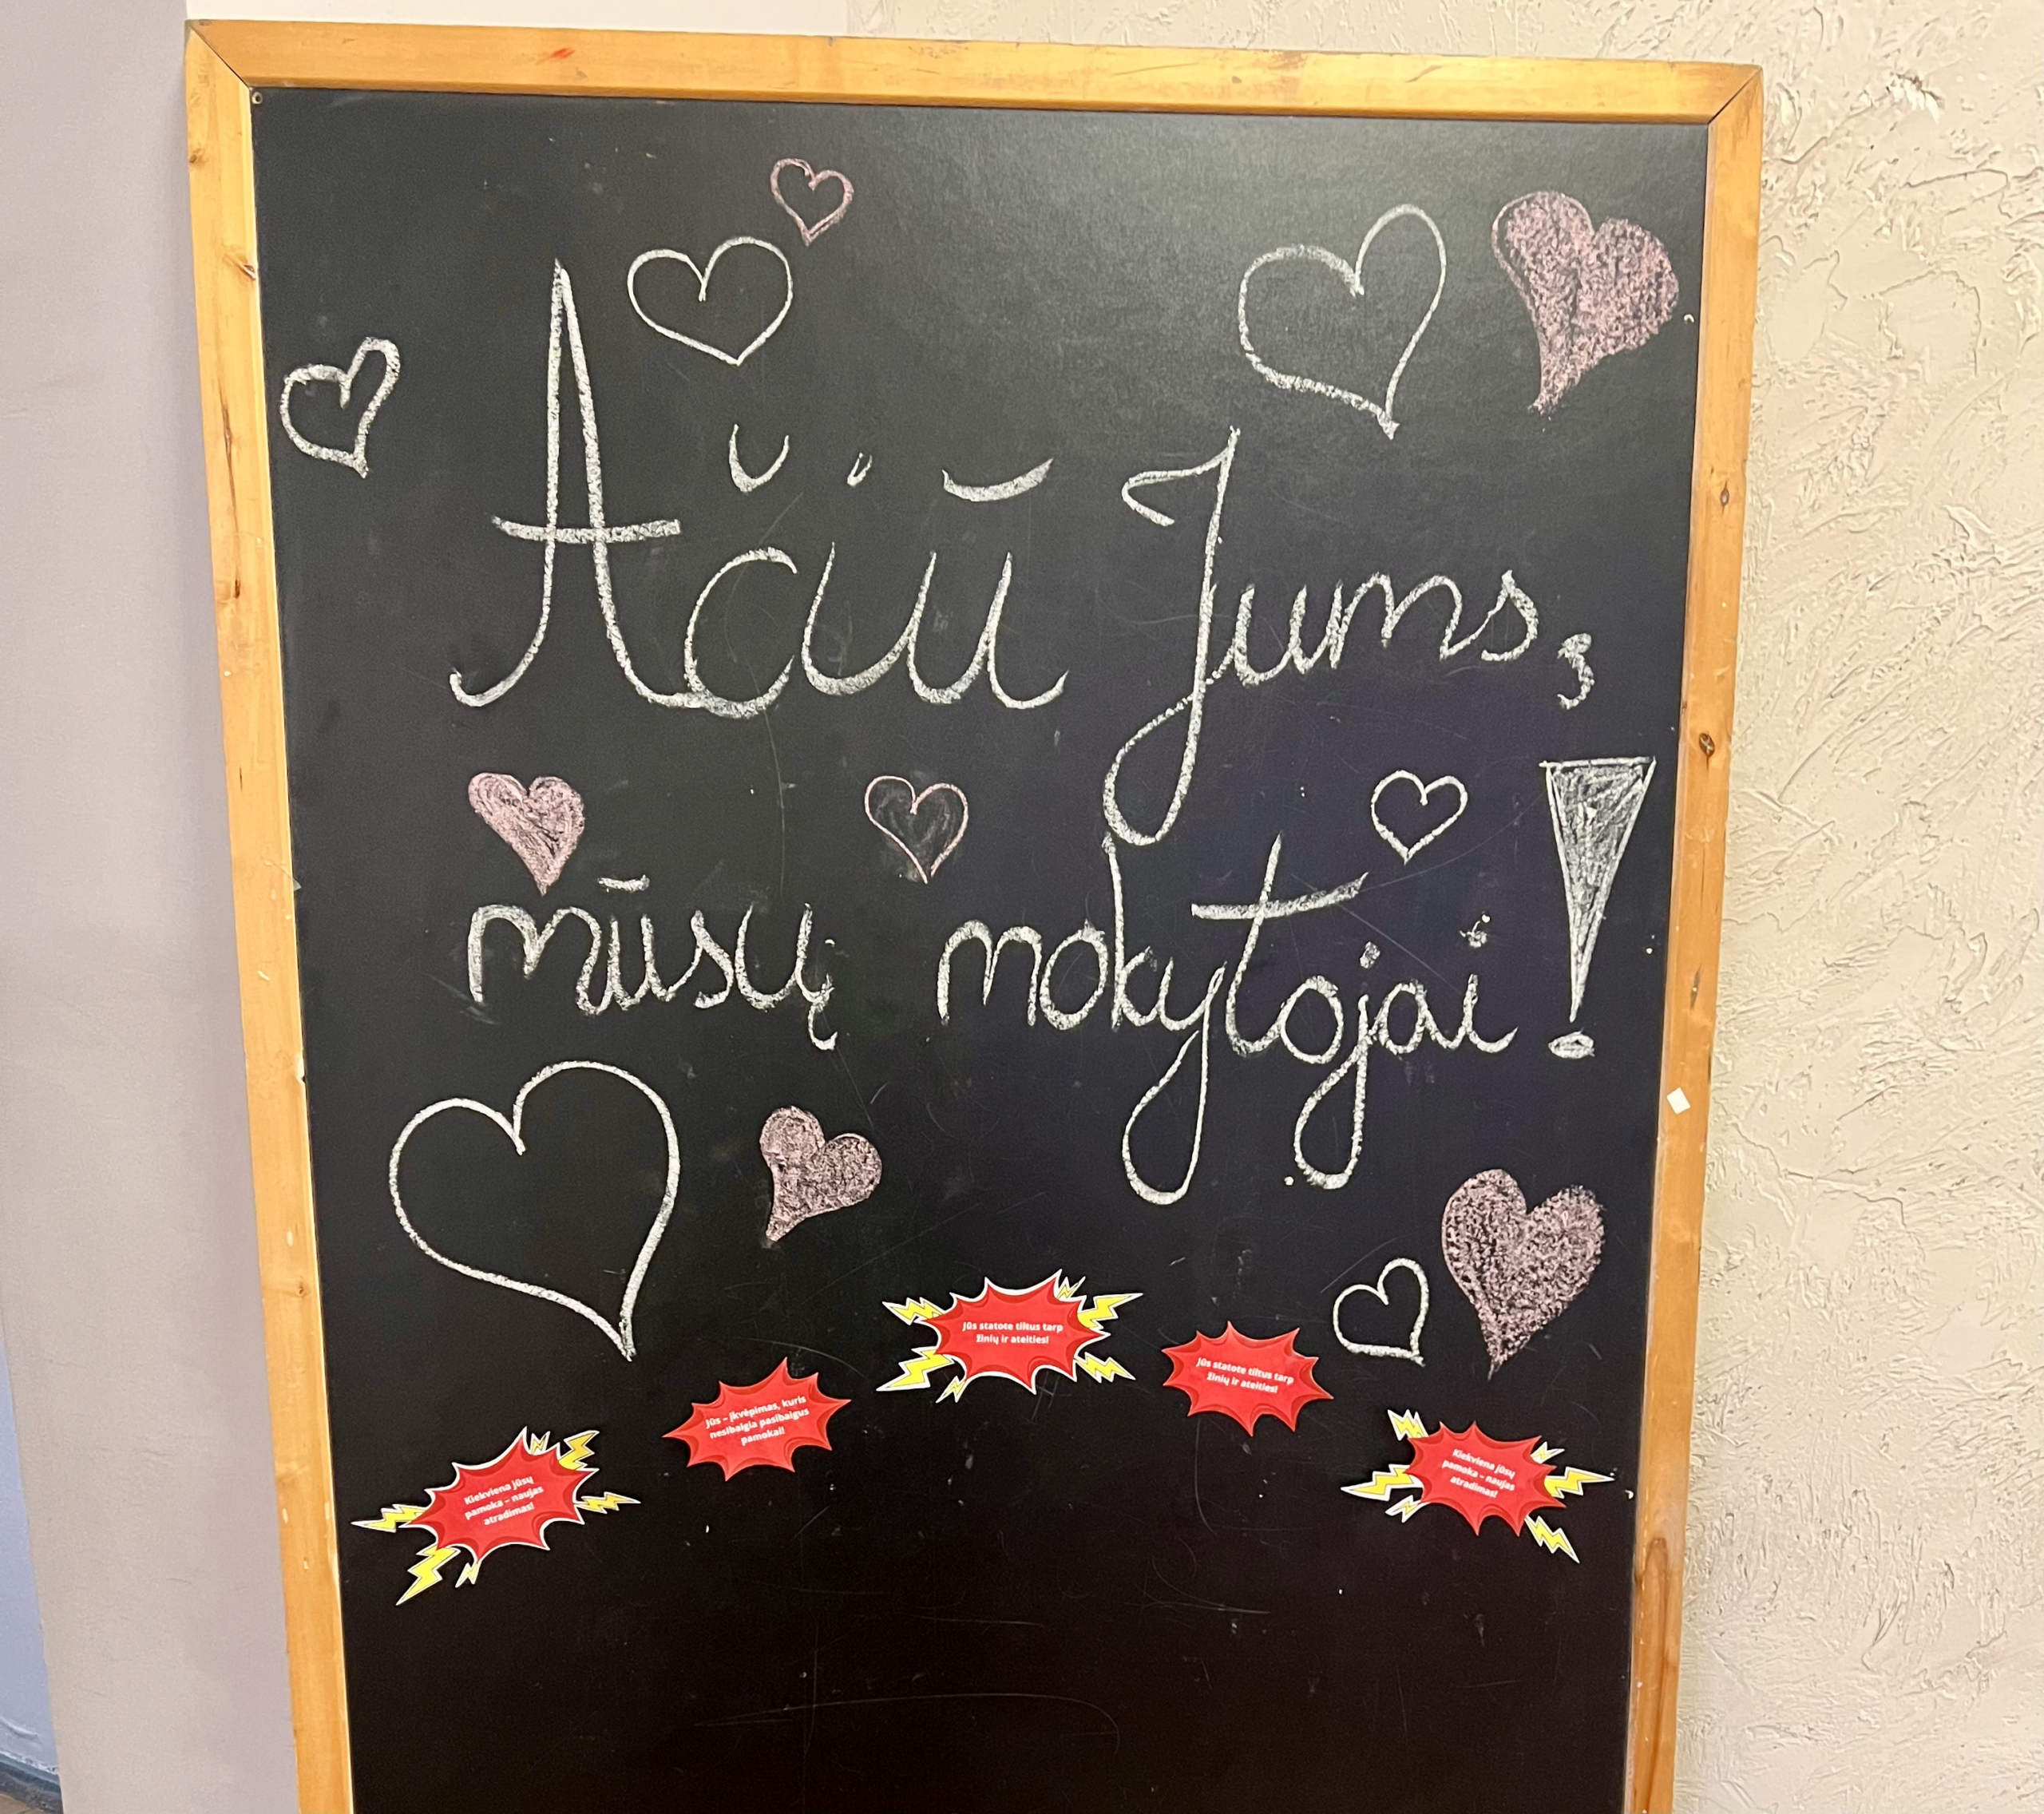 Ačiū Jums,
mūsų mokytojai!
Jūs statote tiltus tarp
žinių ir ateities!
Jūs statote tiltus tarp
žinių ir ateities!
Jūs – įkvėpimas, kuris
nesibaigia pasibaigus
pamokai!
Kiekviena jūsų
pamoka – naujas
atradimas!
Kiekviena jūsų
pamoka – naujas
atradimas!